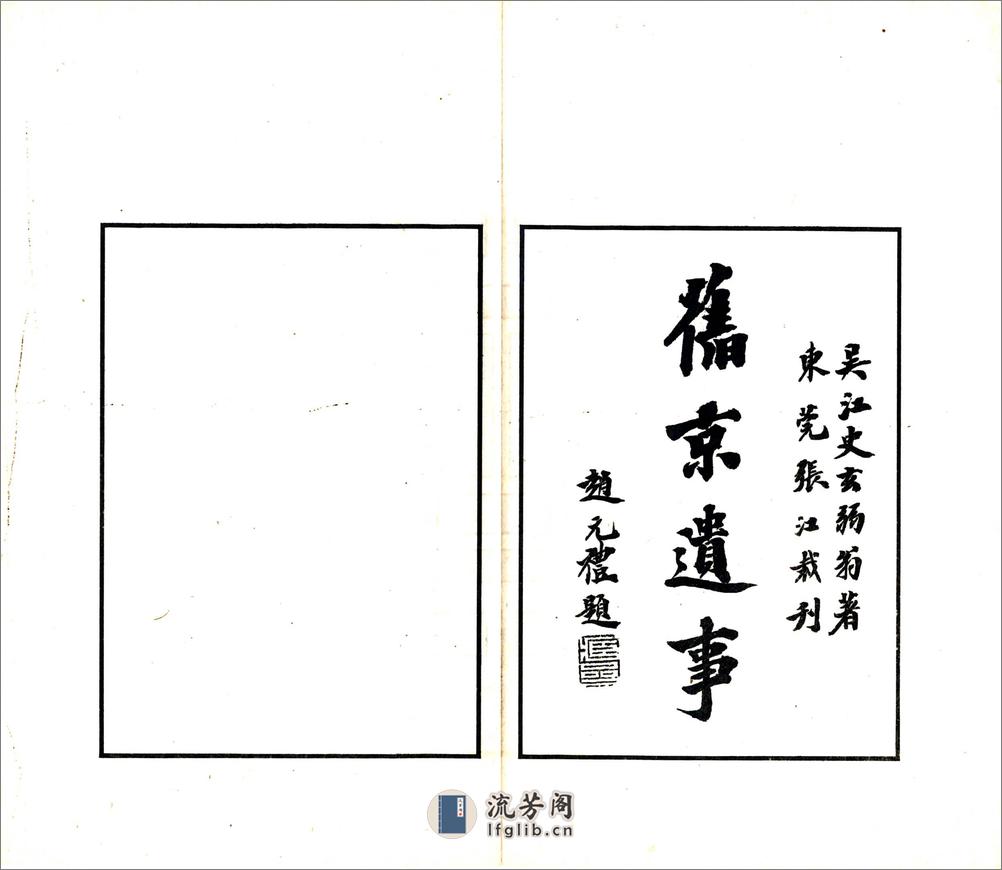 吳江史玄弱翁著
東莞張江裁刊
舊京遺事
趙元禮題
流芳阁
lfglib.cn